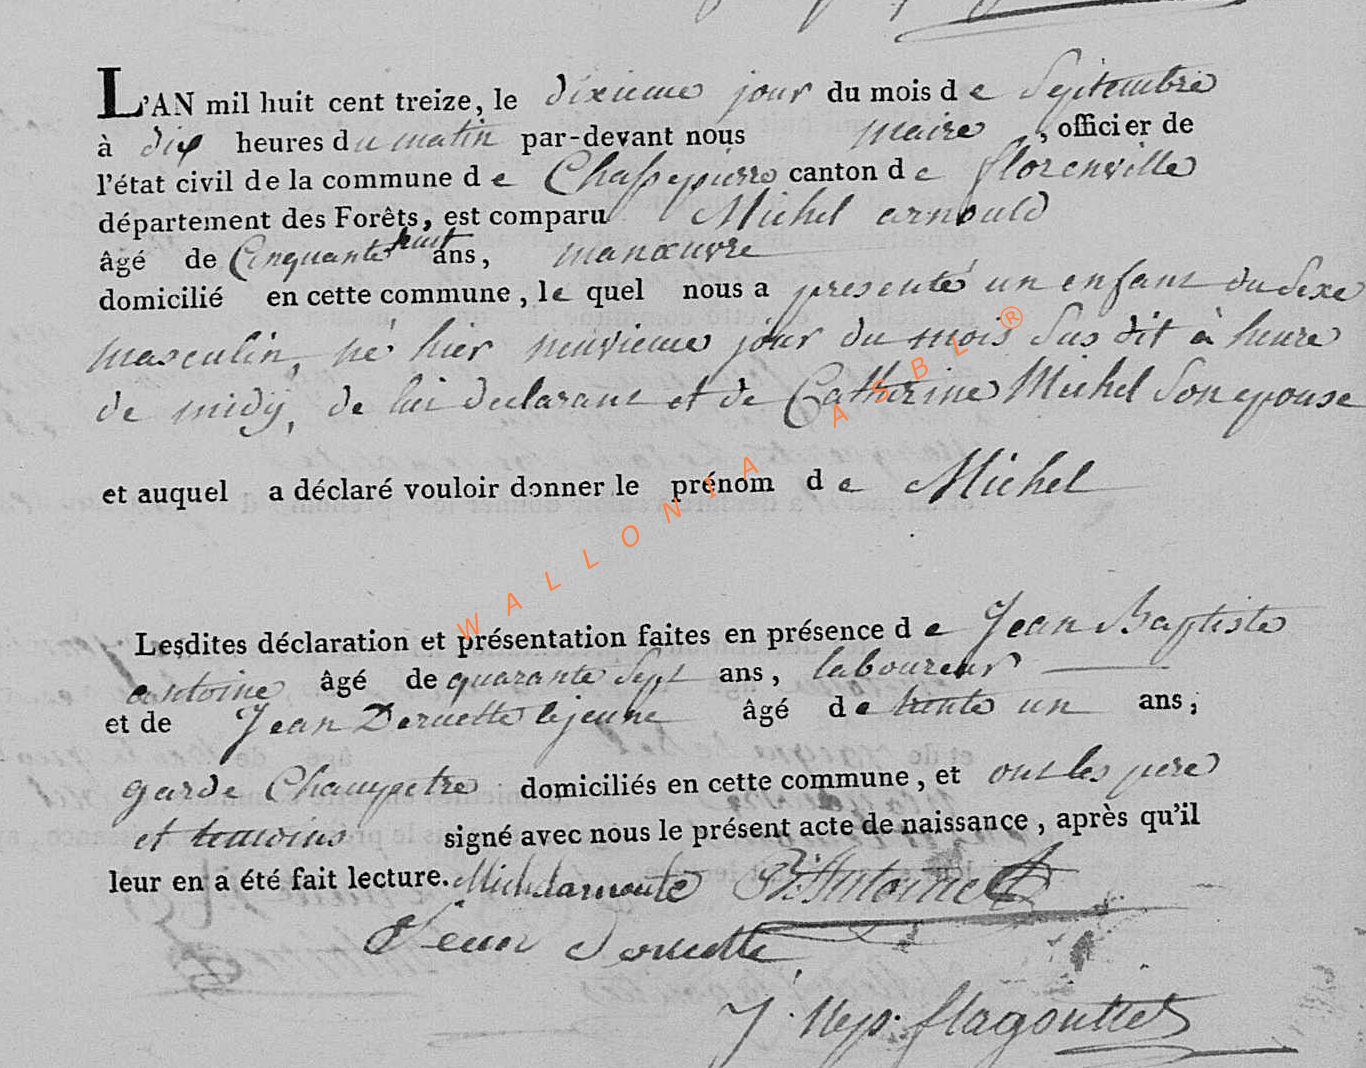 L'AN mil huit cent treize, le dixieme jour du mois de Septembre
à dix heures du matin par-devant nous maire, officier de
l'état civil de la commune de Chassepierre canton de florenville
département des Forêts, est comparu Michel arnould
âgé de Cinquante huit ans, manœuvre
domicilié en cette commune, le quel nous a presenté un enfant du Sexe
masculin, né hier neuvieme jour du mois Sus dit à heure
de midy, de lui declarant et de Catherine Michel Son epouse
et auquel a déclaré vouloir donner le prénom de Michel
WALLONIA ASBL ®
Lesdites déclaration et présentation faites en présence de Jean Baptiste
antoine âgé de quarante Sept ans, laboureur
et de Jean Deruette lejeune âgé de trente un ans;
garde Champetre domiciliés en cette commune, et ont les pere
et temoins signé avec nous le présent acte de naissance, après qu'il
leur en a été fait lecture. Antoine
Jean Deruette
J. Nep. flagouttes